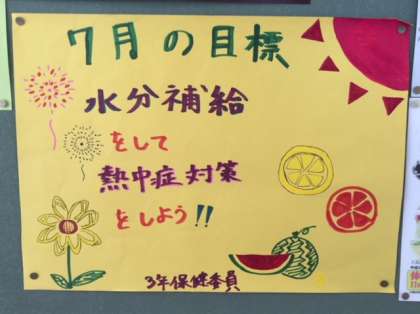 7月の目標
水分補給
をして
熱中症対策
をしよう!!
3年保健委員